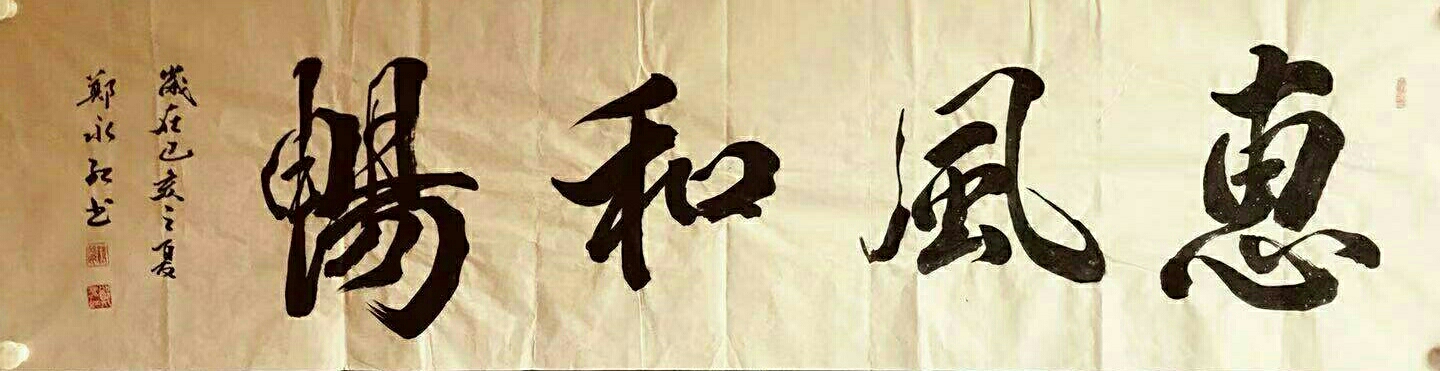 惠風和暢
歲在己亥之夏
鄭永紅書